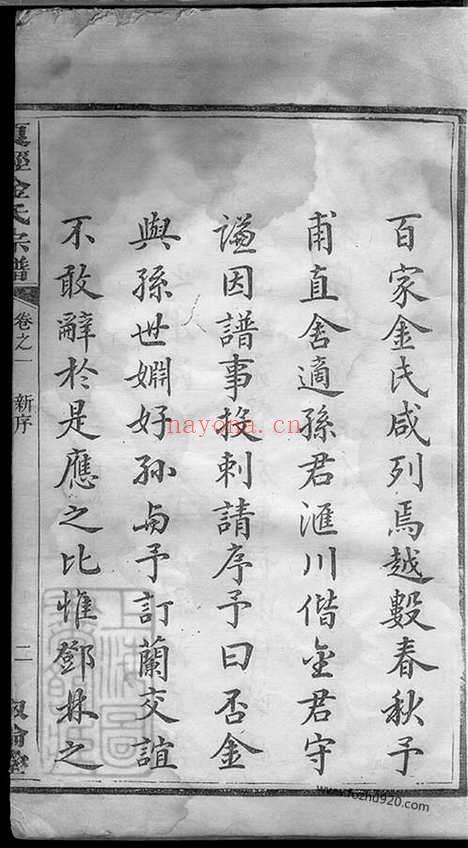 百家金氏咸列焉越數春秋予
甫直舍適孫君滙川偕金君守
謙因譜事投刺請序予曰否金
與孫世婣好孫與予訂蘭交誼
不敢辭於是應之比惟鄧林之
金氏宗譜
卷之一
新序
二
nayona.cn
www.fozhu920.com